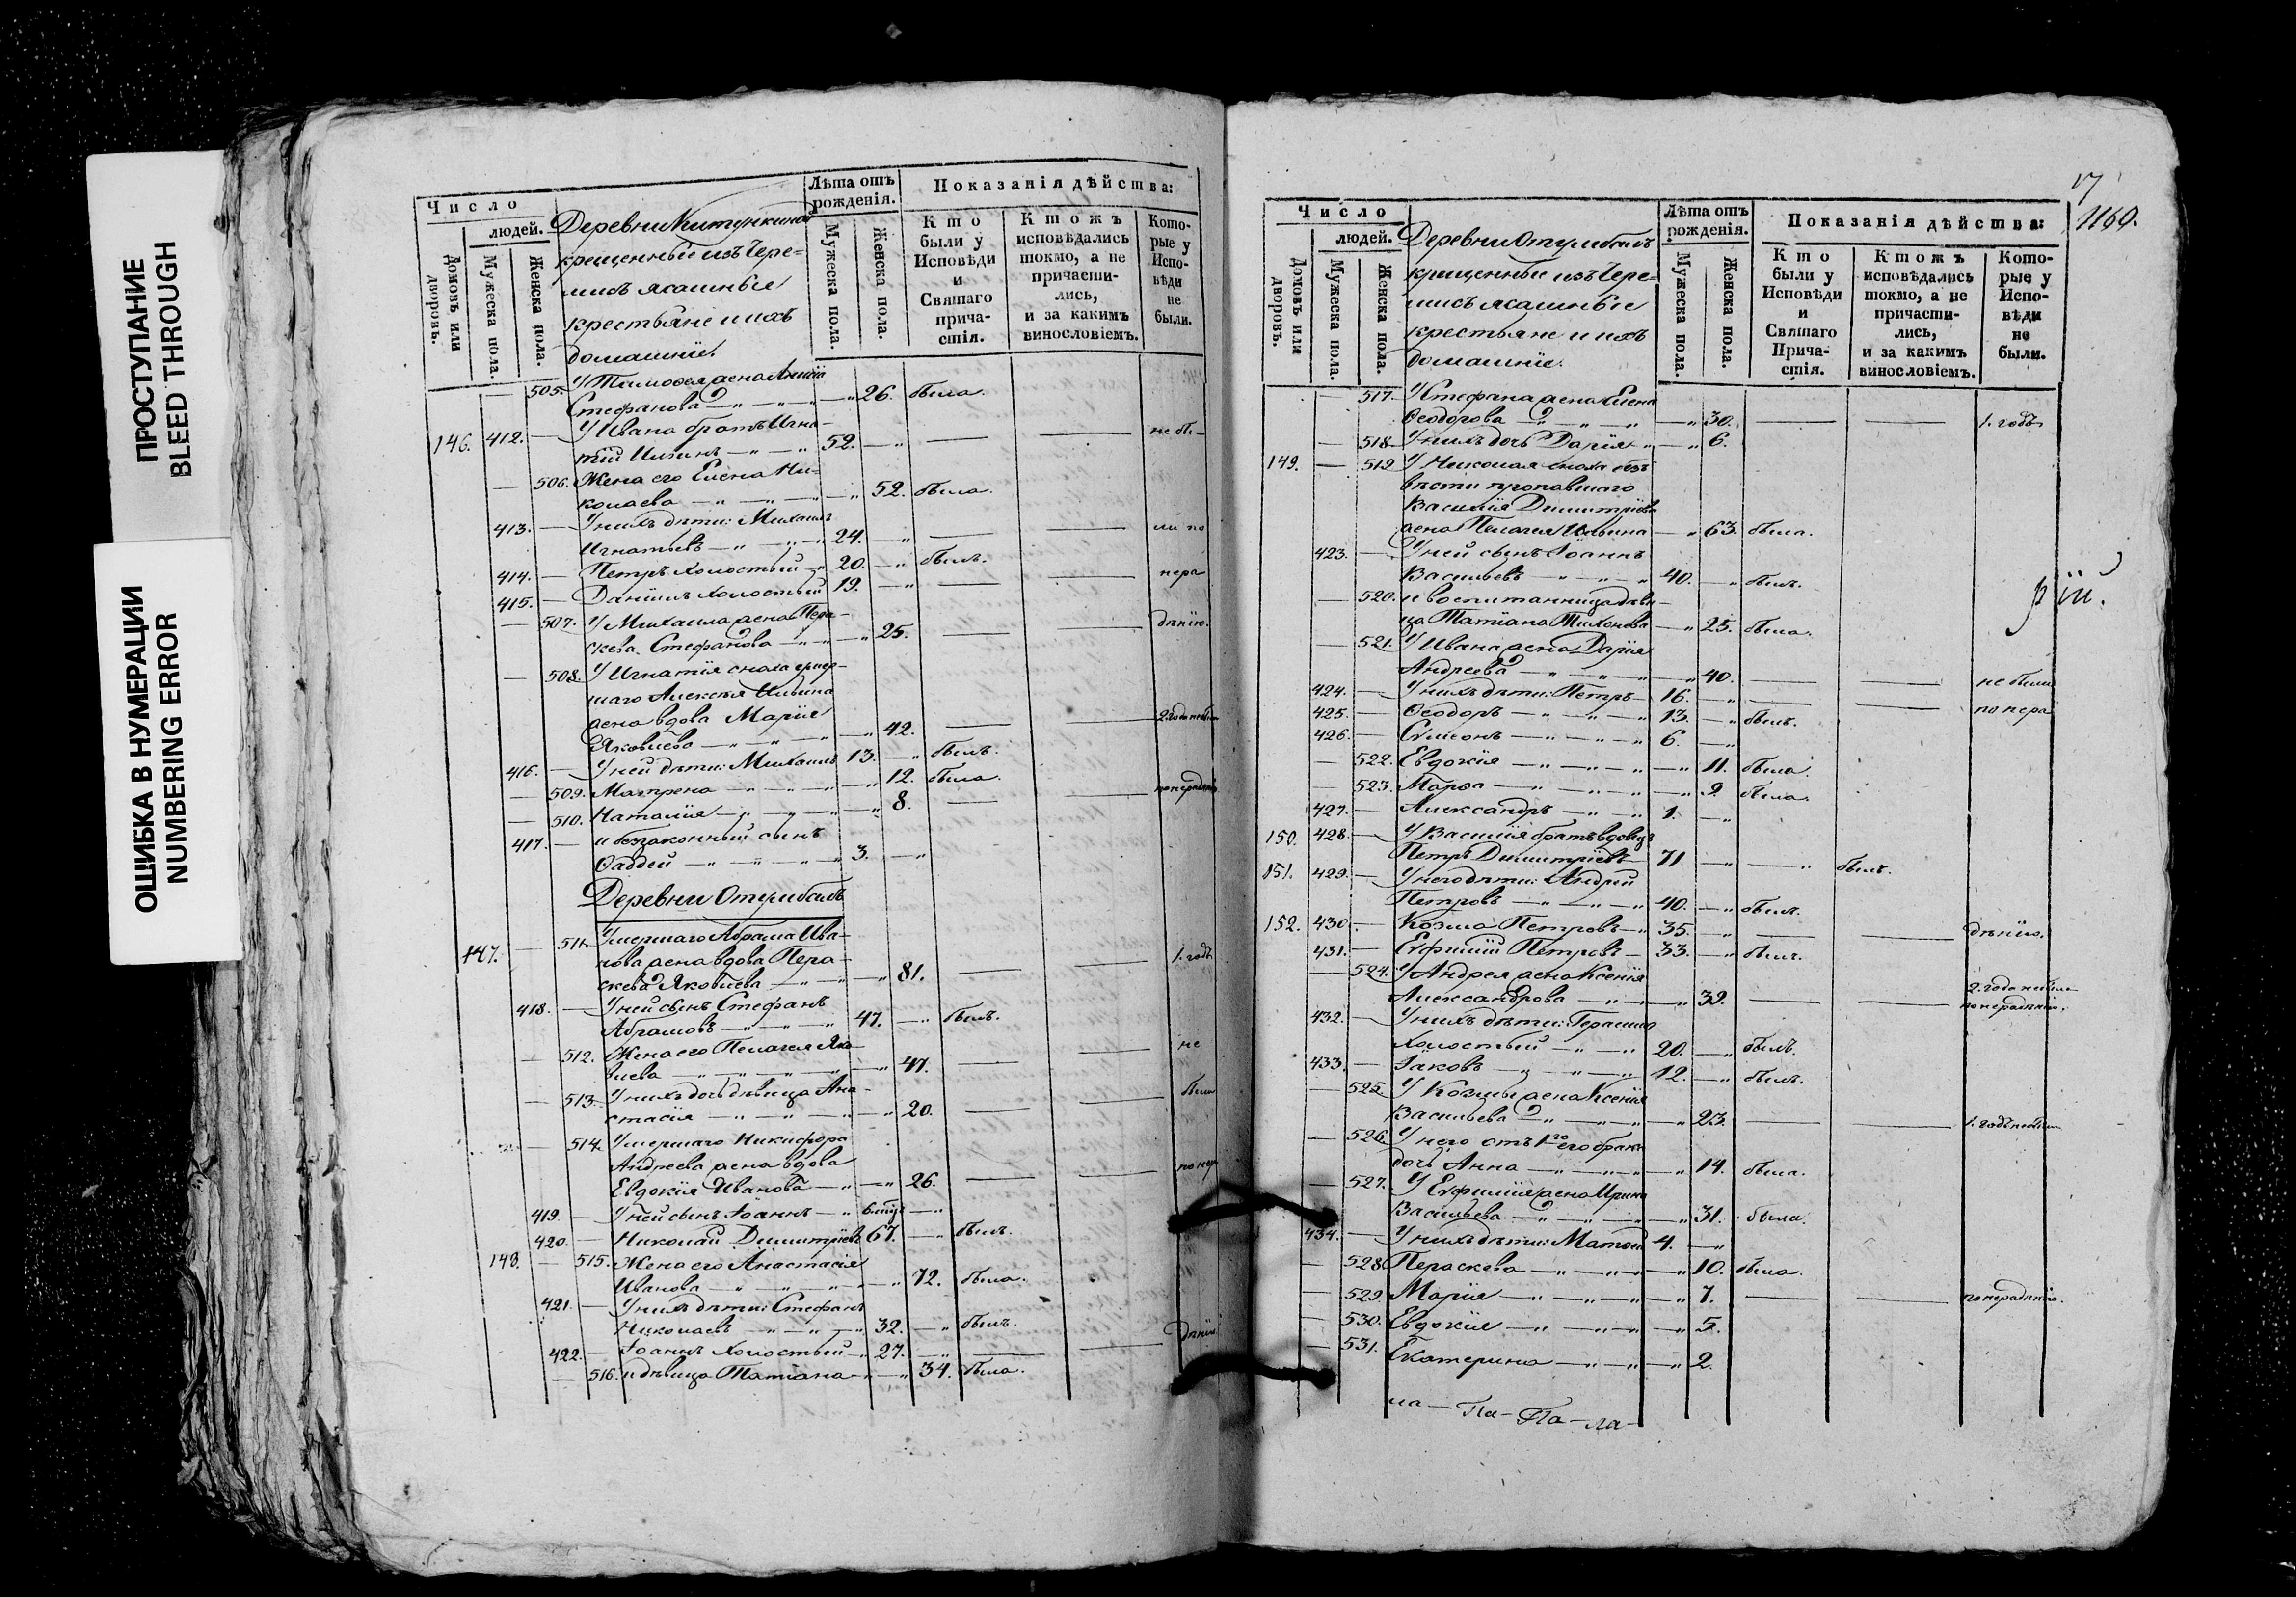 ПРОСТУПАНИЕ
BLEED THROUGH
ОШИБКА В НУМЕРАЦИИ
NUMBERING ERROR
Число
людей.
Домовъ или дворовъ.
Мужеска пола.
Женска пола.
Деревни
крещенныи изъ Чере=
мисъ ясашныи
крестьяне и ихъ
домашніи.
Лѣта отъ рожденія.
Мужеска пола.
Женска пола.
Показанія дѣйства:
Кто были у Исповѣди и Святаго причастія.
Ктожъ исповѣдались токмо, а не причастились, и за какимъ винословіемъ.
Которые у Исповѣди не были.
505. У Тимофея жена
Стефанова 26. была.
146. 412. У Ивана братъ Игна-
тій Ильинъ 52. не бы-
506. Жена его Елена Ни-
колаева 52. была.
413. У нихъ дѣти: Михаилъ
Игнатьевъ 24. ли по
414. Петръ холостый 20. былъ.
415. Даніилъ холостый 19. нера
507. У Михаила жена Пара-
скева Стефанова 25. дѣнію.
508. У Игнатія сноха умер-
шаго Алексѣя Ильина
жена вдова Марія
Яковлева 42.
416. У ней дѣти: Михаилъ 13. былъ.
509. Матрена 12. была.
510. Наталія 8.
417. и беззаконный сынъ
Фаддей 3.
Деревни Отулибашъ
147. 511. Умершаго Абрама Ива-
нова жена вдова Пара-
скева Яковлева 81. 1. годъ
418. У ней сынъ Стефанъ
Абрамовъ 47. былъ.
512. Жена его Пелагея Яко-
влева 47. не
513. У нихъ дочь дѣвица Ана-
стасія 20. были
514. Умершаго Никифора
Андреева жена вдова
Евдокія Иванова 26. по нер
419. У ней сынъ Іоаннъ
420. Николай Димитріевъ 67. былъ.
148. 515. Жена его Анастасія
Иванова 72. была.
421. У нихъ дѣти: Стефанъ
Николаевъ 32. былъ.
422. Іоаннъ холостый 27. дѣнію.
516. и дѣвица Татіана 34. была.
17
1160.
Число
людей.
Домовъ или дворовъ.
Мужеска пола.
Женска пола.
Деревни Отулибашъ
крещенныи изъ Чере=
мисъ ясашныи
крестьяне и ихъ
домашніи.
Лѣта отъ рожденія.
Мужеска пола.
Женска пола.
Показанія дѣйства:
Кто были у Исповѣди и Святаго Причастія.
Ктожъ исповѣдались токмо, а не причастились, и за какимъ винословіемъ.
Которые у Исповѣди не были.
517. У Стефана жена Елена
Феодорова 30. 1. годъ
518. У нихъ дочь Дарія 6.
149. 519. У Николая сноха безъ
вѣсти пропавшаго
Василія Димитріева
жена Пелагея Ильина 63. была.
423. У ней сынъ Іоаннъ
Васильевъ 40. былъ.
520. и воспитанница дѣви-
ца Татіана Тихонова 25. была.
521. У Ивана жена Дарія
Андреева 40. не были
424. У нихъ дѣти: Петръ 16. по нера
425. Феодоръ 13. былъ.
426. Симеонъ 6.
522. Евдокія 11. была.
523. Марфа 9. была.
427. Александръ 1.
150. 428. У Василія братъ вдовецъ
Петръ Димитріевъ 71 былъ.
151. 429. У него дѣти: Андрей
Петровъ 40. былъ.
152. 430. Козма Петровъ 35. дѣнію.
431. Евфимій Петровъ 33. былъ.
524. У Андрея жена Ксенія
Александрова 39. 2. года не была
по нерадѣнію.
432. У нихъ дѣти: Герасимъ
холостый 20. былъ.
433. Іаковъ 12. былъ.
525. У Козмы жена Ксенія
Васильева 23. 1. годъ не была
526. У него отъ 1го его брака
дочь Анна 14. была.
527. У Евфимія жена Ирина
Васильева 31. была.
434. У нихъ дѣти: Матвей 4.
528. Параскева 10. была.
529. Марія 7. по нерадѣнію.
530. Евдокія 5.
531. Екатерина 2.
рій.